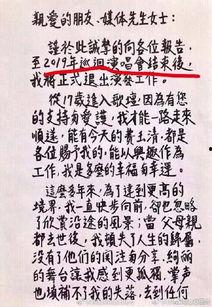 親愛的朋友、媒体先生女士：
謹於此誠摯的向各位報告，
至2019年巡迴演唱會結束後，
我將正式退出演藝工作。
從17歲進入歌壇，因為有您
的支持與愛護，我才能一路走來
順遂，能有今天的費玉清，都是
各位賜予我的，能以興趣作為
工作，我是多麼的幸福與幸運。
這麼多年來，為了達到更高的
境界，我一直快步向前，卻也忽略
了欣賞沿途的風景；當父母親
都去世後，我頓失了人生的歸屬，
沒有了他們的關注與分享，絢麗
的舞台讓我感到更孤獨，掌聲
也填補不了我的失落，去到任何